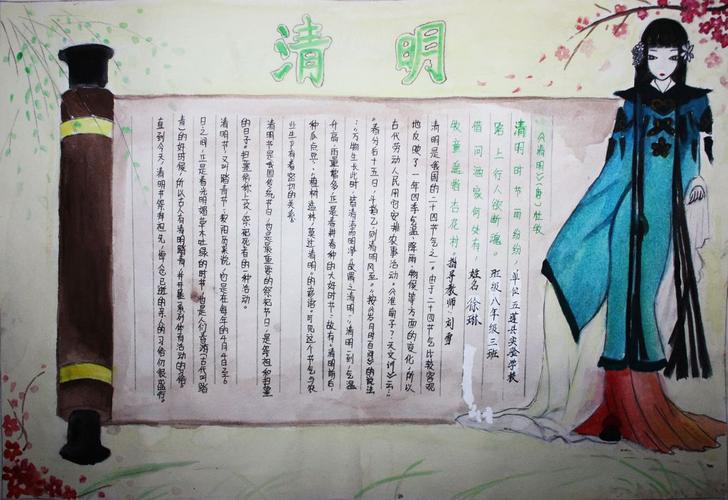 清明
《清明》(唐)杜牧
清明时节雨纷纷,
路上行人欲断魂。
借问酒家何处有,
牧童遥指杏花村。
单位 五莲县实验学校
班级 八年级三班
姓名 徐琳
指导教师:刘雪
清明是我国的二十四节气之一。由于二十四节气比较客观
地反映了一年四季气温、降雨、物候等方面的变化,所以
古代劳动人民用它安排农事活动。《淮南子·天文训》云:“
春分后十五日,斗指乙,则清明风至。”按《岁时百问》的说法
:“万物生长此时,皆清洁而明净。故谓之清明。”清明一到,气温
升高,雨量增多,正是春耕春种的大好时节。故有“清明前后,
种瓜点豆”、“植树造林,莫过清明”的农谚。可见这个节气与农
业生产有着密切的关系。
清明节是我国传统节日,也是最重要的祭祀节日,是祭祖和扫墓
的日子。扫墓俗称上坟,祭祀死者的一种活动。
清明节,又叫踏青节,按阳历来说,它是在每年的4月4日至6
日之间,正是春光明媚草木吐绿的时节,也是人们春游(古代叫踏
青)的好时候,所以古人有清明踏青,并开展一系列体育活动的习俗。
直到今天,清明节祭拜祖先,悼念已逝的亲人的习俗仍很盛行。